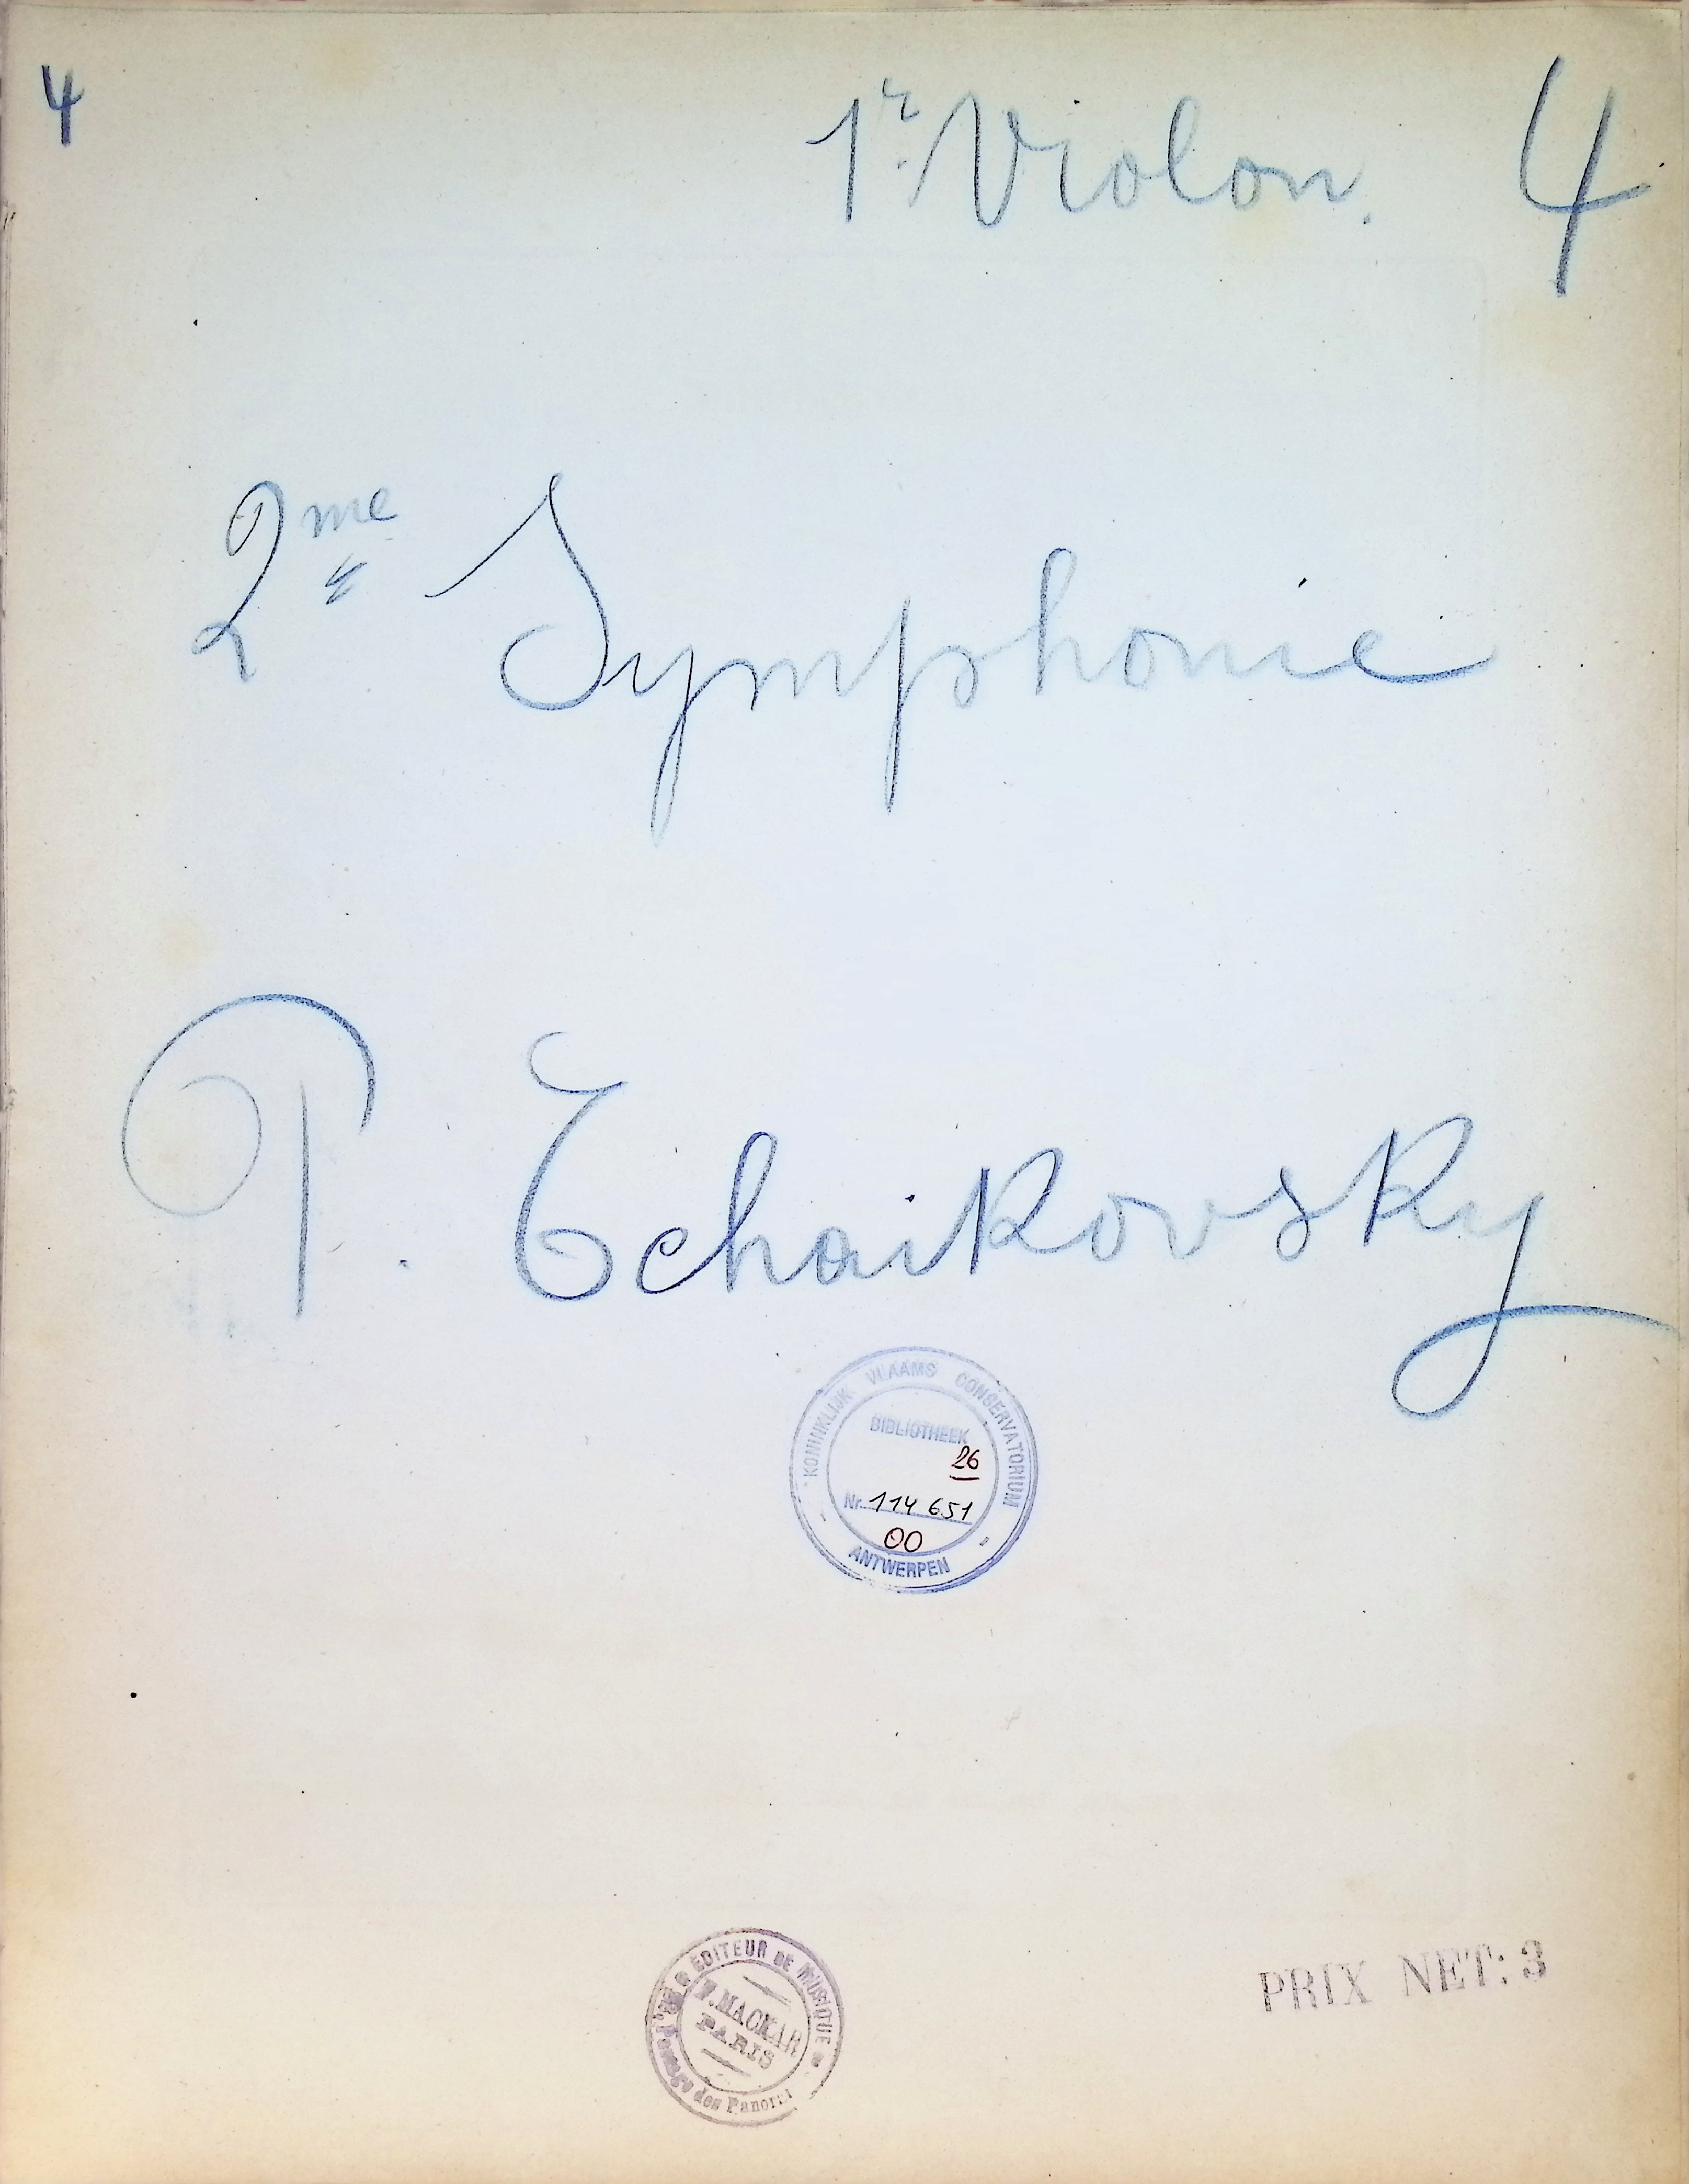 4
1r. Violon. 4
2me Symphonie
P. Tchaikovsky
KONINKLIJK VLAAMS CONSERVATORIUM
BIBLIOTHEEK
26
Nr. 114 651
00
ANTWERPEN
EDITEUR DE MUSIQUE
F. MACKAR
PARIS
Passage des Panora
PRIX NET: 3